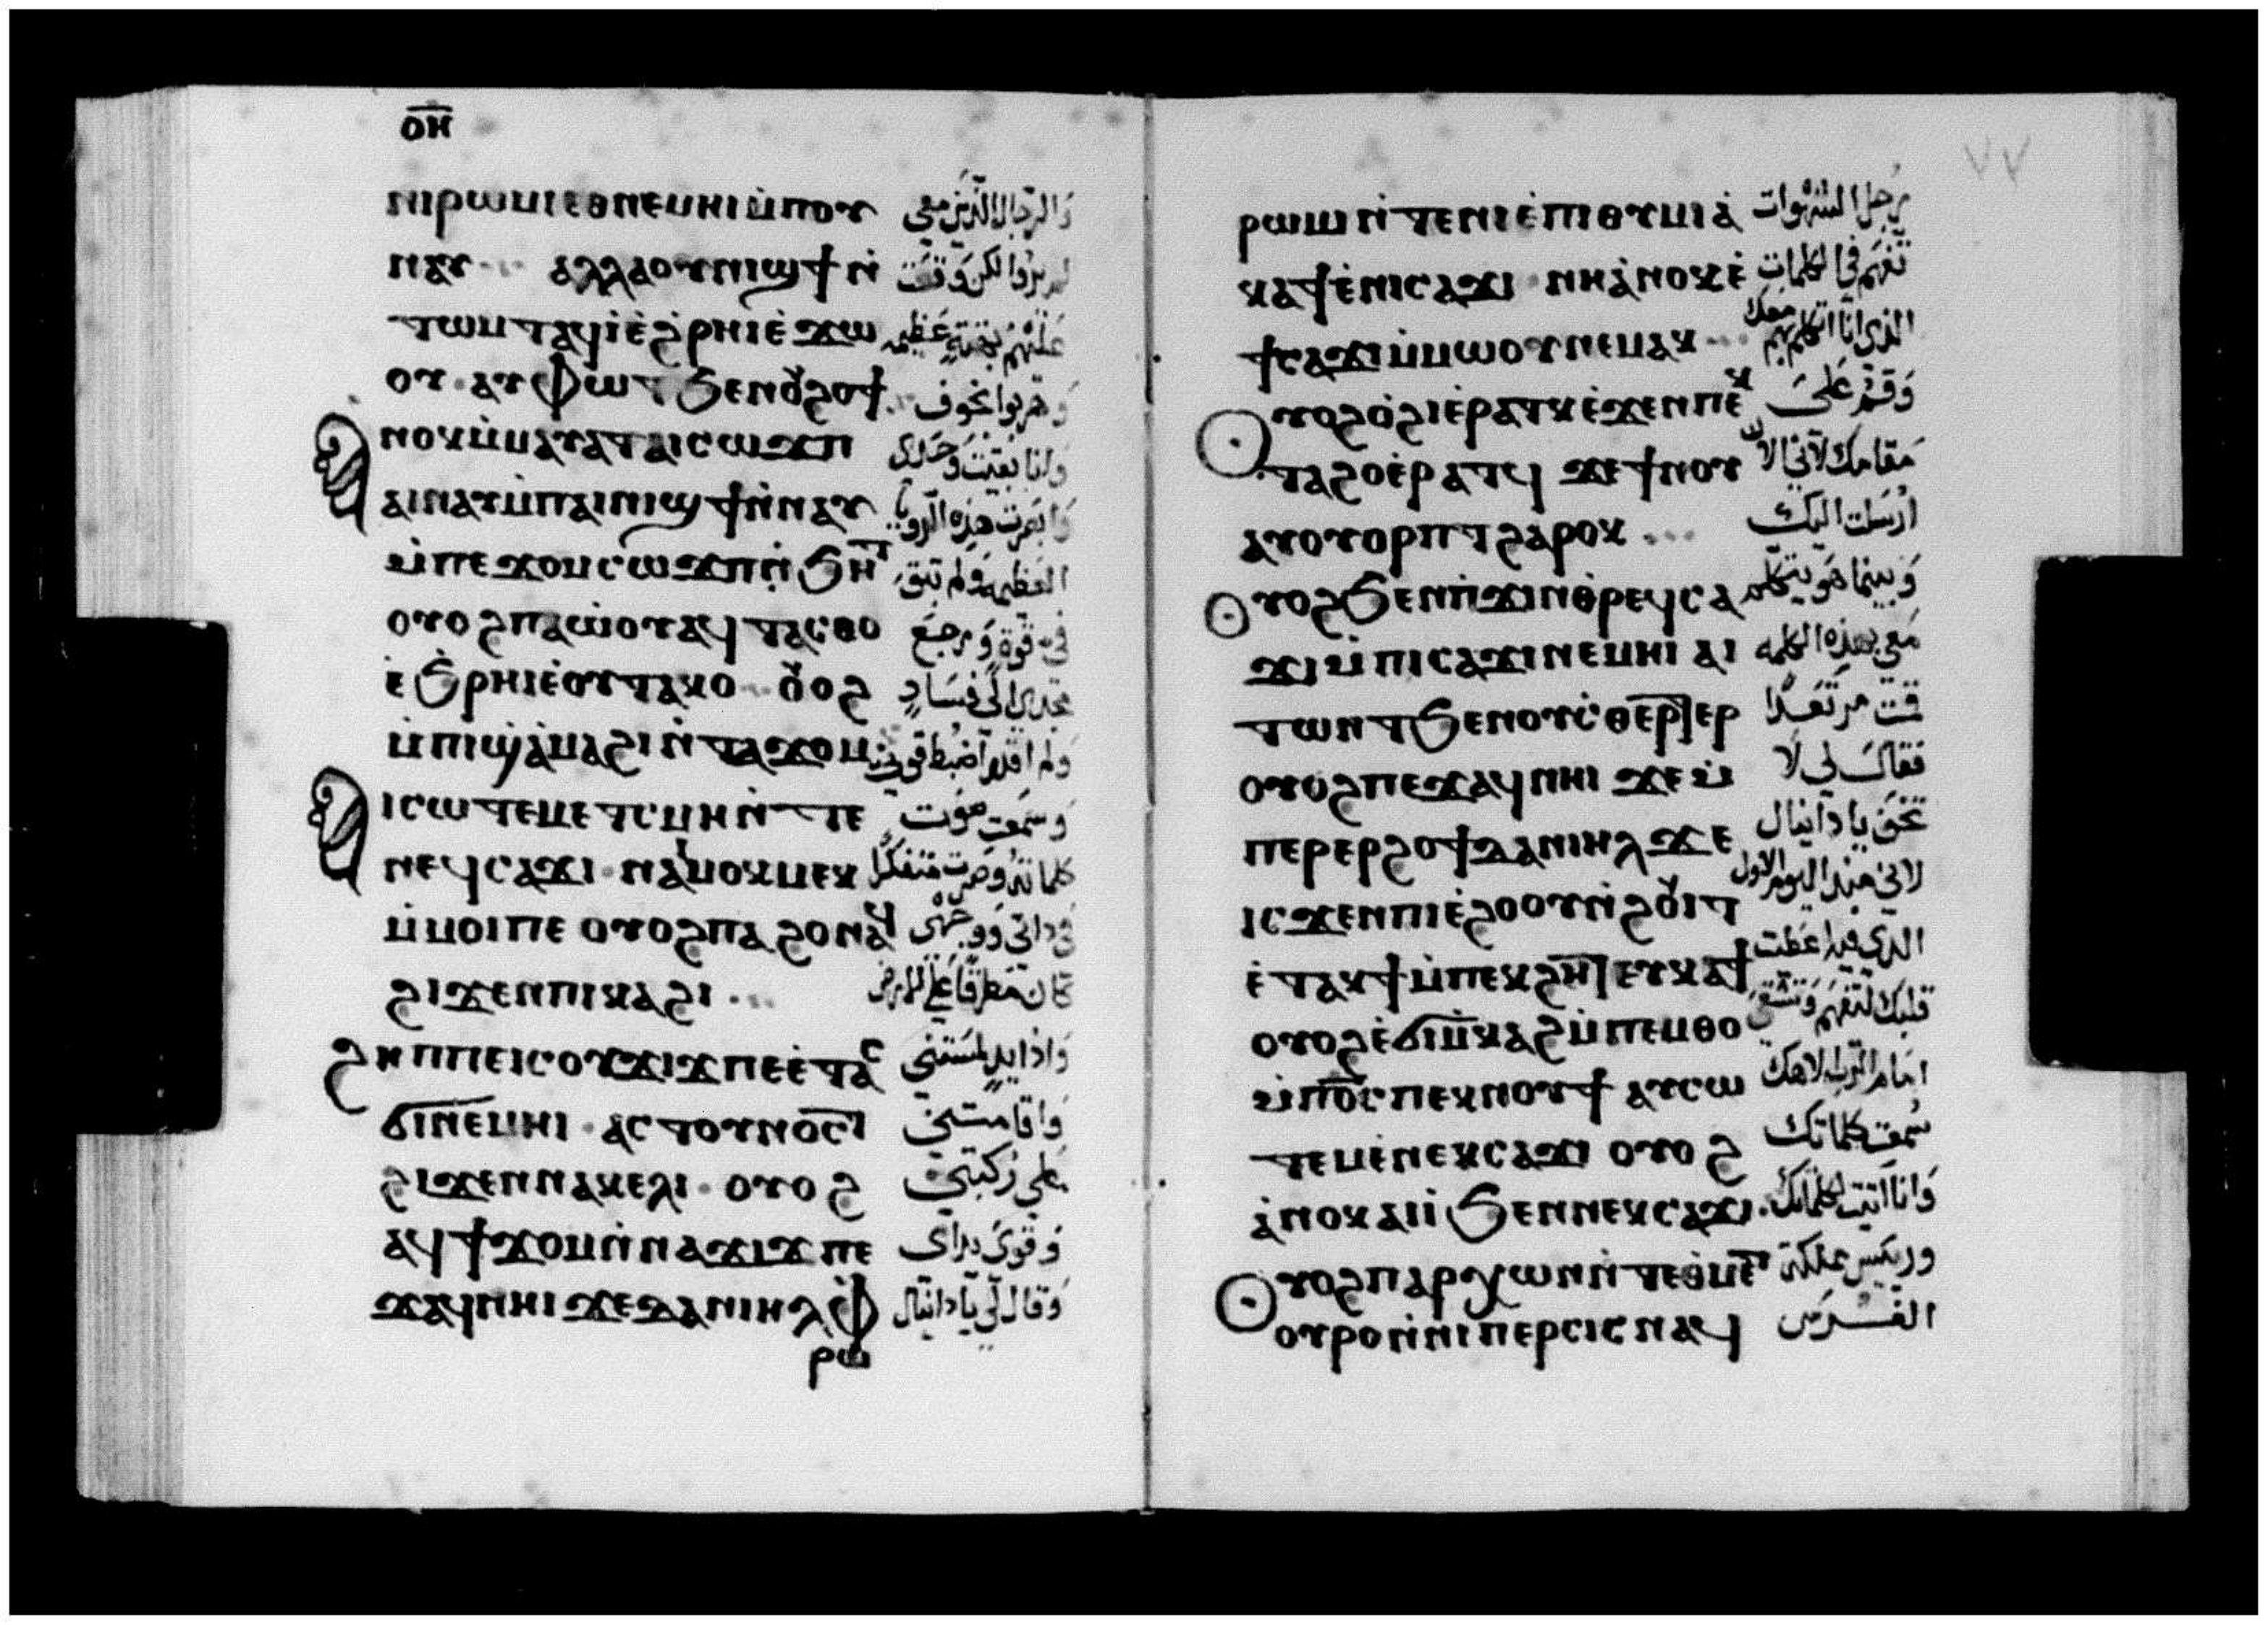 ⲟⲏ
ⲛⲓⲣⲱⲙⲓ ⲉⲑⲛⲉⲙⲏⲓ ⲙ̀ⲡⲟⲩ والرجال الذين معي
ⲛⲁⲩ ⲁⲗⲗⲁ ⲟⲩⲛⲓϣϯ ⲛ̀ لم يروا لكن وقعت
ⲧⲱⲙⲧ ⲁϥⲓ̀ ⲉ̀ϩ̀ⲣⲏⲓ ⲉ̀ϫⲱ عليهم بهتة عظيمه
ⲟⲩ · ⲁⲩⲫⲱⲧ ϧⲉⲛ ⲟⲩϩⲟϯ وهربوا بخوف
ⲁⲛⲟⲕ ⲙ̀ⲙⲁⲩⲁⲧ ⲁⲓⲥⲱϫⲡ وانا بقيت وحدى
ⲁⲓⲛⲁⲩ ⲙ̀ⲡⲁⲓⲛⲓϣϯ ⲛ̀ⲛⲁⲩ وابصرت هذه الرويا
ⲙ̀ⲡⲉ ϫⲟⲙ ⲥⲱϫⲡ ⲛ̀ϧⲏⲧ العظيمه ولم تبق
ⲟⲩⲟϩ ⲡⲁⲱ̀ⲟⲩ ⲁϥⲧⲁⲥⲑⲟ في قوة ورجع
ⲉ̀ϧ̀ⲣⲏⲓ ⲉ̀ⲟⲩⲧⲁⲕⲟ ⲟⲩⲟϩ مجدي الى فساد
ⲙ̀ⲡⲓϣ̀ⲁ̀ⲙⲁϩⲓ ⲛ̀ⲧⲁϫⲟⲙ ولم اقدر اضبط قوتي
ⲁⲓⲥⲱⲧⲉⲙ ⲉⲧⲥⲙⲏ ⲛ̀ⲧⲉ وسمعت صوت
ⲛⲉϥⲥⲁϫⲓ · ⲛⲁⲓⲙⲟⲕⲙⲉⲕ كلماته وصرت متفكرا
ⲙ̀ⲙⲟⲓ ⲡⲉ ⲟⲩⲟϩ ⲡⲁϩⲟ ⲛⲁϥ في داتي ووجهى
ϩⲓϫⲉⲛ ⲡⲓⲕⲁϩⲓ كان مطرقا على الارض
ϩⲏⲡⲡⲉ ⲓⲥ ⲟⲩϫⲓϫ ⲡⲉ ⲉ̀ⲧⲁⲥ واذا يد لمستني
ϭⲓⲛⲉⲙⲏⲓ · ⲁⲥⲧⲟⲩⲛⲟⲥⲧ واقامتني
ϩⲓϫⲉⲛ ⲛⲁⲕⲉⲗⲓ · ⲟⲩⲟϩ على ركبتي
ⲁϥϯϫⲟⲙ ⲛ̀ⲛⲁϫⲓϫ ⲡⲉ وقوى يداى
ϫⲁϥ ⲛⲏⲓ ϫⲉ ⲇⲁⲛⲓⲏⲗ ⲫ̀ وقال لي يا دانيال
ⲣⲱ
٧٧
ⲣⲱⲙⲓ ⲛ̀ⲧⲉ ⲛⲓⲉ̀ⲡⲓⲑⲩⲙⲓⲁ̀ رجل الشهوات
ⲕⲁϯ ⲉ̀ⲛⲓⲥⲁϫⲓ ⲛⲏ ⲁ̀ⲛⲟⲕ ⲉ̀ تفهم في الكلمات
ϯⲥⲁϫⲓ ⲙ̀ⲙⲱⲟⲩ ⲛⲉⲙⲁⲕ الذى انا اتكلم بهم معك
ⲟⲩⲟϩ ⲟ̀ϩⲓ ⲉ̀ⲣⲁⲧⲕ ⲉ̀ϫⲉⲛ ⲡⲉⲕ وقم على
ⲧⲁϩⲟ ⲉ̀ⲣⲁⲧϥ ϫⲉ ϯⲛⲟⲩ مقامك لآنى الان
ⲁⲩⲟⲩⲟⲣⲡⲧ ϩⲁⲣⲟⲕ ارسلت اليك
ⲟⲩⲟϩ ϧⲉⲛ ⲡ̀ϫⲓⲛⲑ̀ⲣⲉϥⲥⲁ وبينما هو يتكلم
ϫⲓ ⲙ̀ⲡⲓⲥⲁϫⲓ ⲛⲉⲙⲏⲓ ⲁⲓ معي بهذه الكلمه
ⲧⲱⲛⲧ ϧⲉⲛ ⲟⲩⲥ̀ⲑⲉⲣⲧⲉⲣ قمت مرتعدا
ⲟⲩⲟϩ ⲡⲉϫⲁϥ ⲛⲏⲓ ϫⲉ ⲙ̀ فقال لي لا
ⲡⲉⲣⲉⲣϩⲟϯ ⲇⲁⲛⲓⲏⲗ ϫⲉ تخف يا دانيال
ⲓⲥϫⲉⲛ ⲡⲓⲉ̀ϩⲟⲟⲩ ⲛ̀ϩⲟⲩⲓⲧ لاني منذ اليوم الاول
ⲉ̀ⲧⲁⲕϯ ⲙ̀ⲡⲉⲕϩⲏⲧ ⲉⲩⲕⲁϯ الدى فيه اعطيت
ⲟⲩⲟϩ ⲉ̀ϭⲓⲙ̀ⲕⲁϩ ⲙ̀ⲡⲉⲙⲑⲟ قلبك لتفهم وتشقى
ⲙ̀ⲡϭⲥ ⲡⲉⲕⲛⲟⲩϯ ⲁⲩⲥⲱ امام الرب الاهك
ⲧⲉⲙ ⲉ̀ⲛⲉⲕⲥⲁϫⲓ ⲟⲩⲟϩ سمعت كلماتك
ⲁ̀ⲛⲟⲕ ⲁⲓⲓ̀ ϧⲉⲛ ⲛⲉⲕⲥⲁϫⲓ · وانا اتيت لكلماتك
ⲟⲩⲟϩ ⲡⲁⲣⲭⲱⲛ ⲛ̀ⲧⲉ ⲑ̀ⲙⲉⲧ وريس مملكة
ⲟⲩⲣⲟ ⲛ̀ⲛⲓⲡⲉⲣⲥⲓⲥ ⲛⲁϥ الفرس